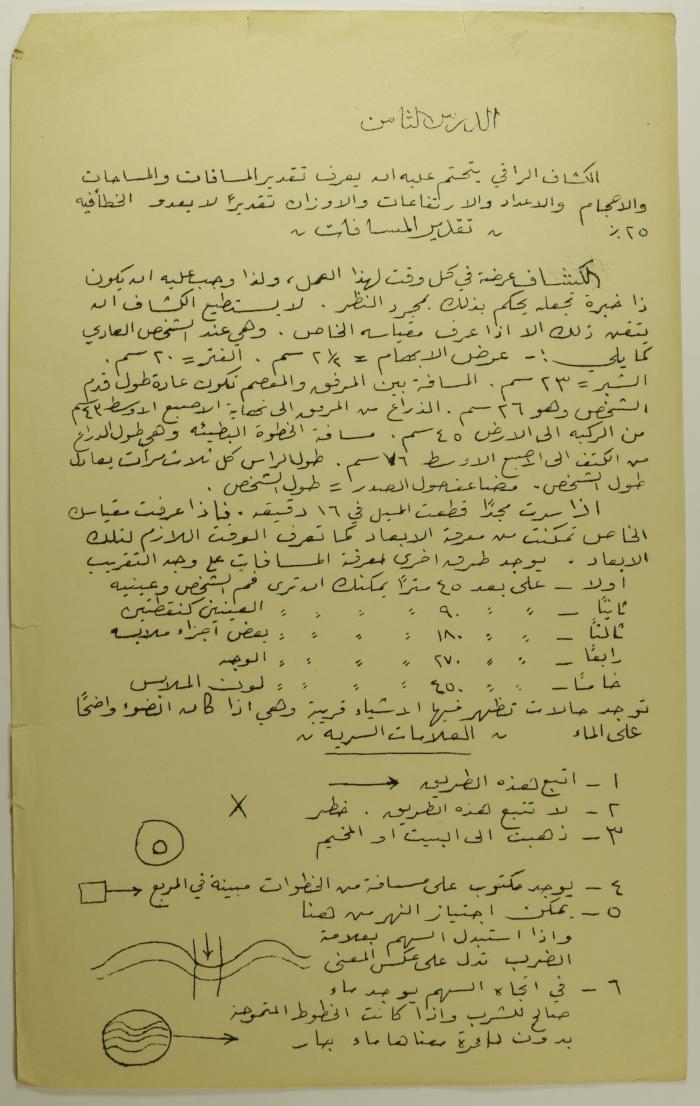 الدرس الثامن
الكشاف الراقي يتحتم عليه ان يعرف تقدير المسافات والمساحات
والاحجام والاعداد والارتفاعات والاوزان تقديرًا لا يعدو الخطأ فيه
٢٥٪ " تقدير المسافات "
الكشاف عرضة في كل وقت لهذا العمل، ولذا وجب عليه ان يكون
ذا خبرة تجعله يحكم بذلك بمجرد النظر. لا يستطيع الكشاف ان
يتقن ذلك الا اذا عرف مقياسه الخاص. وهي عند الشخص العادي
كما يلي :- عرض الابهام = ٢½ سم. الفتر = ٢٠ سم.
الشبر = ٢٣ سم. المسافة بين المرفق والمعصم تكون عادة طول قدم
الشخص وهو ٢٦ سم. الذراع من المرفق الى نهاية الاصبع الاوسط ٤٣ سم
من الركبه الى الارض ٤٥ سم. مسافة الخطوة البطيئه وهي طول الذراع
من الكتف الى الاصبع الاوسط ٧٦ سم. طول الراس كل ثلاث مرات يعادل
طول الشخص. مضاعفه حول الصدر = طول الشخص.
اذا سرت مجدًا قطعت الميل في ١٦ دقيقه. فاذا عرفت مقياسك
الخاص تمكنت من معرفة الابعاد كما تعرف الوقت اللازم لتلك
الابعاد. يوجد طرق اخرى لمعرفة المسافات على وجه التقريب
اولا - على بعد ٤٥ مترًا يمكنك ان ترى فم الشخص وعينيه
ثانيًا - " " ٩٠ " " " " العينين كنقطتين
ثالثًا - " " ١٨٠ " " " " بعض اجزاء ملابسه
رابعًا - " " ٢٧٠ " " " " الوجه
خامسًا - " " ٤٥٠ " " " " لون الملابس
توجد حالات تظهر فيها الاشياء قريبة وهي اذا كان الضوء واضحًا
على الماء " العلامات السريه "
١ - اتبع هذه الطريق
٢ - لا تتبع هذه الطريق. خطر
٣ - ذهبت الى البيت او المخيم
٤ - يوجد مكتوب على مسافة من الخطوات مبينة في المربع
٥ - يمكن اجتياز النهر من هنا
واذا استبدل السهم بعلامة
الضرب تدل على عكس المعنى
٦ - في اتجاه السهم يوجد ماء
صالح للشرب واذا كانت الخطوط المتموجة
بدون دائرة معناها ماء جار